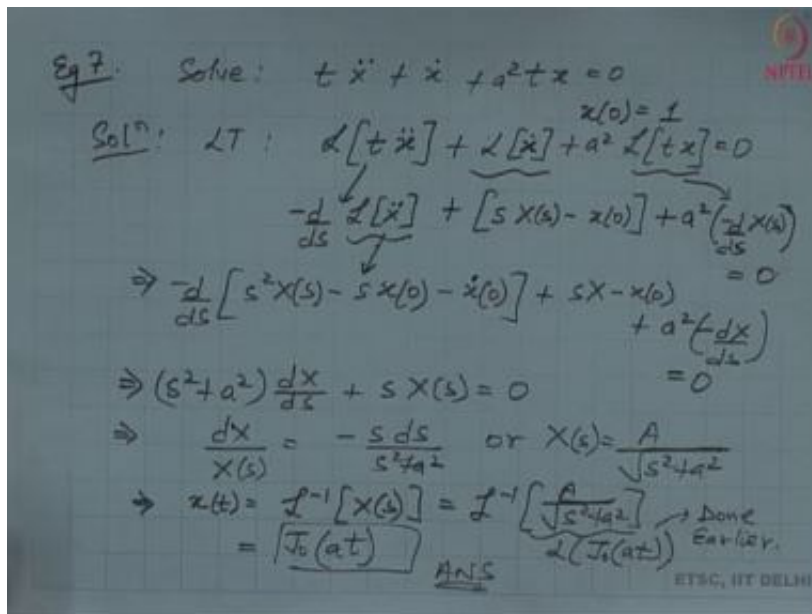 Eg 7. Solve: t ẍ + ẋ + a² t x = 0
NPTEL
x(0) = 1
Solⁿ: LT: ℒ[t ẍ] + ℒ[ẋ] + a² ℒ[t x] = 0
-d/ds ℒ[ẍ] + [s X(s) - x(0)] + a² (-d/ds X(s)) = 0
⇒ -d/ds [s² X(s) - s x(0) - ẋ(0)] + sX - x(0)
+ a² (-dX/ds) = 0
⇒ (s² + a²) dX/ds + s X(s) = 0
⇒ dX/X(s) = - s ds/s² + a² or X(s) = A/√s² + a²
→ x(t) = ℒ⁻¹ [X(s)] = ℒ⁻¹ [A/√s² + a²] → Done
Earlier.
= J₀(at) ℒ(J₀(at))
ANS
ETSC, IIT DELHI